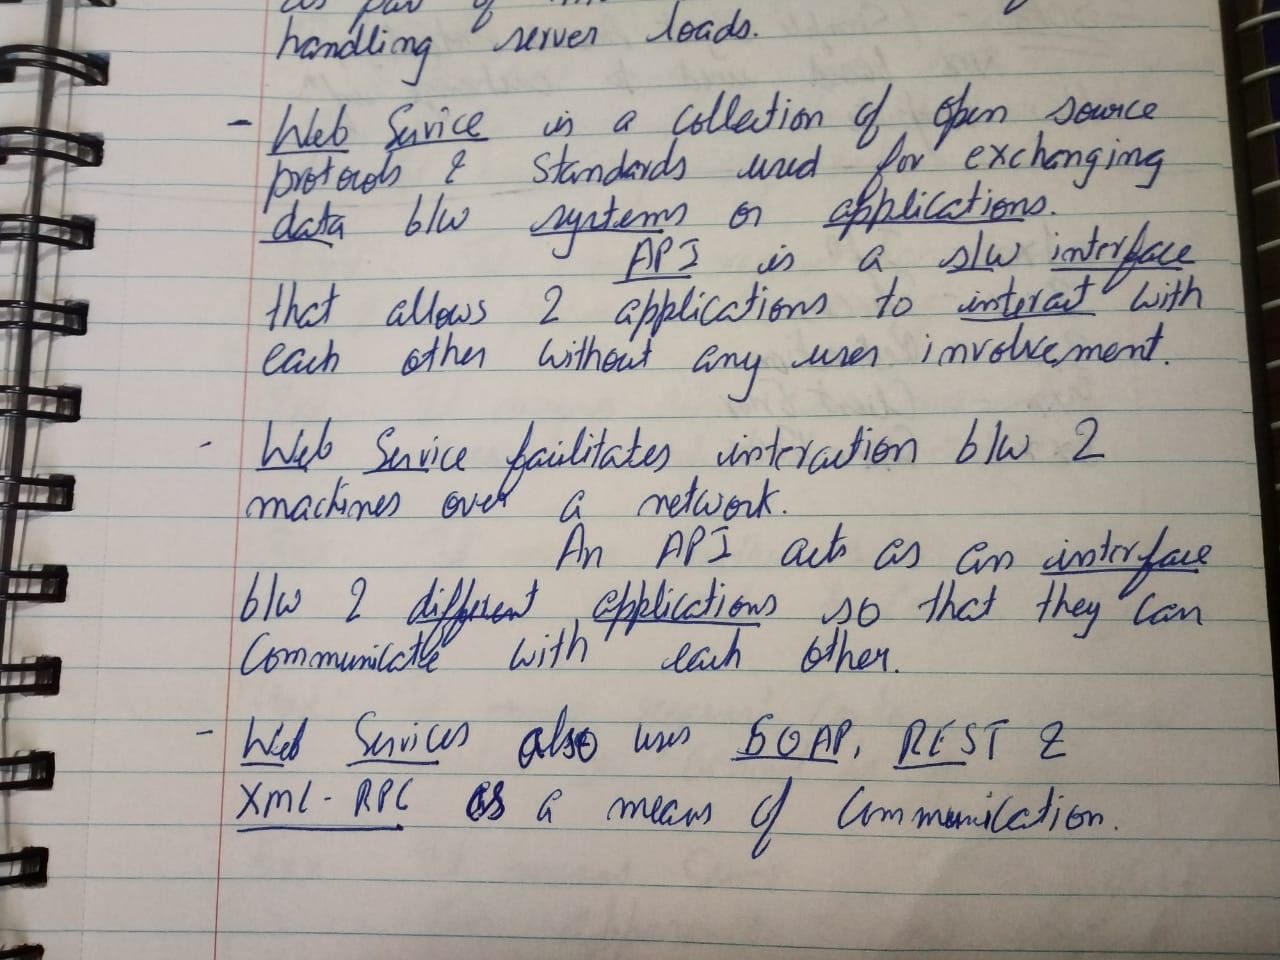 as par of
handling server loads.
- Web Service is a collection of open source
protocols & standards used for exchanging
data b/w systems or applications.
API is a s/w interface
that allows 2 applications to interact with
each other without any user involvement.
- Web Service facilitates interaction b/w 2
machines over a network.
An API acts as an interface
b/w 2 different applications so that they can
communicate with each other.
- Web Services also uses SOAP, REST &
XML-RPC as a means of communication.